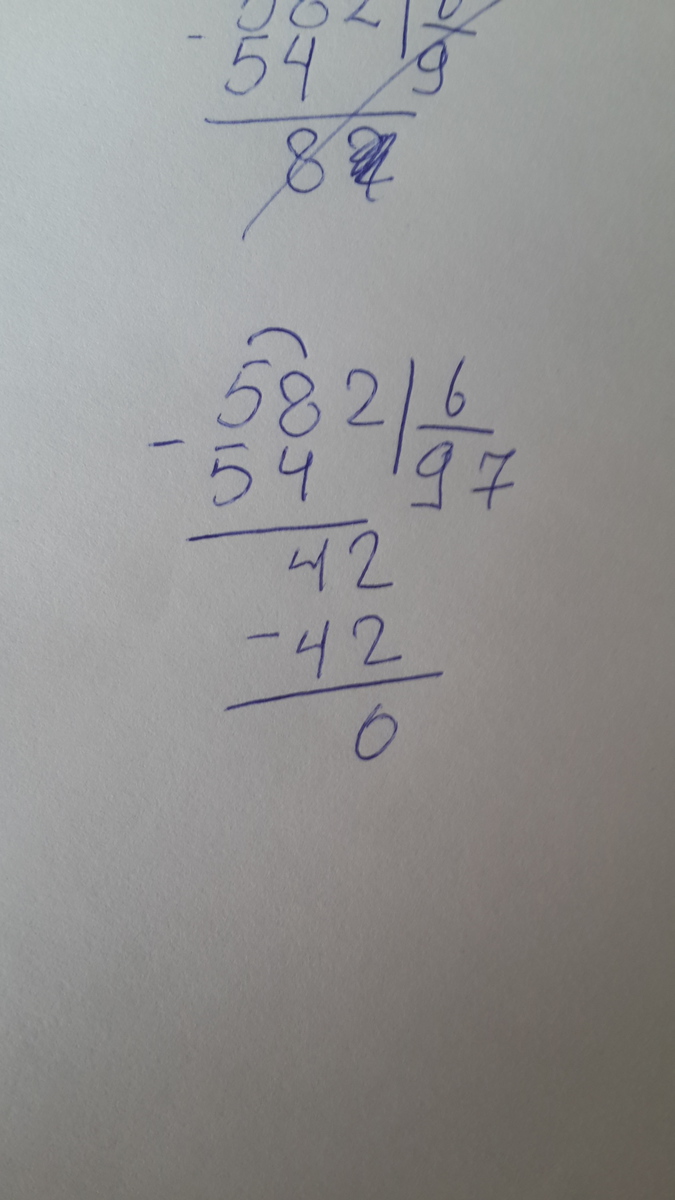 582
- 54 9
8
582 6
- 54 97
42
- 42
0